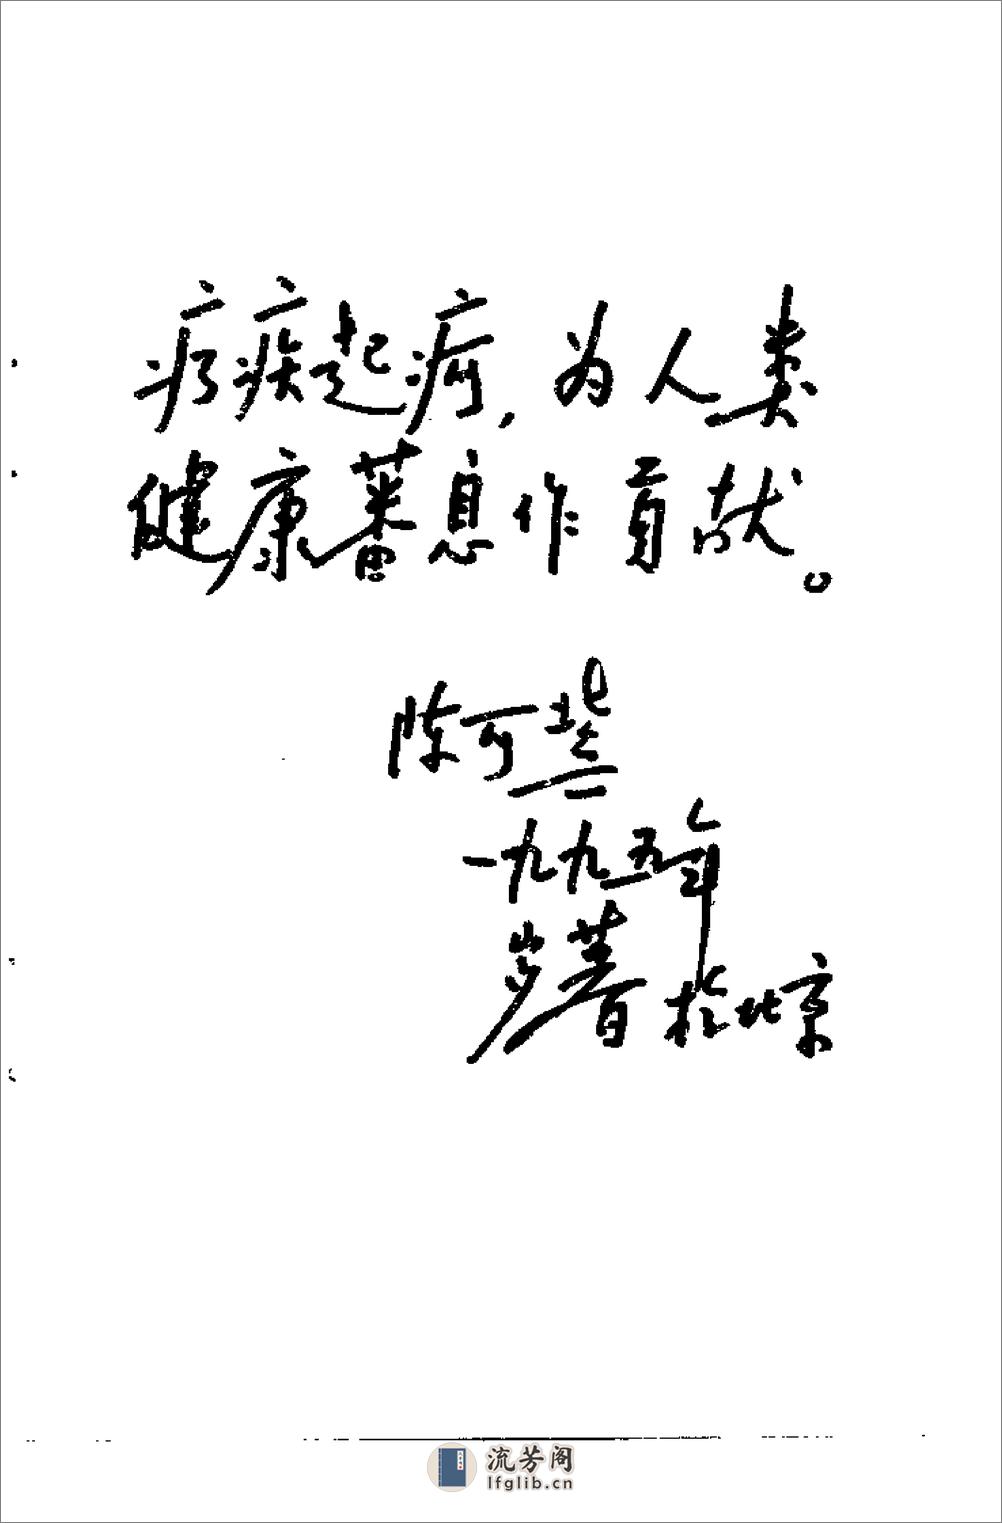 疗疾起疴，为人类
健康蕃息作贡献。
陈可冀
一九九五年
岁暮于北京
流芳阁
lfglib.cn